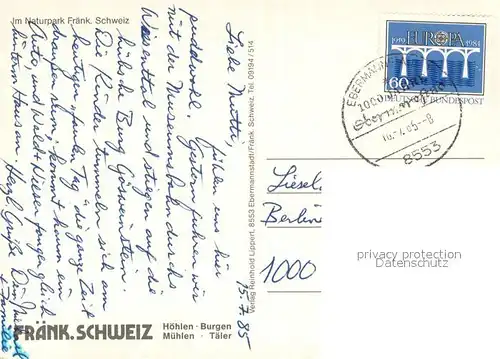 Im Naturpark Fränk. Schweiz
Liebe Mutti,
fühlen uns hier
pudelwohl. Gestern fuhren wir
mit der Museumsbahn durchs
Wiesenttal und stiegen auf die
hübsche Burg Gößweinstein.
Die Kinder tummeln sich am
heutigen faulen Tag die ganze Zeit
draußen rum, kommt kaum ein
Auto, und Wald + Wiesen fangen gleich
hinterm Haus an. Herzl. Grüße Dir
+ Familie
15.7.85
Verlag Reinhold Lippert, 8553 Ebermannstadt/Fränk. Schweiz, Tel. 09194/514
1959 EUROPA 1984
60
DEUTSCHE BUNDESPOST
EBERMANNSTADT
1000 Jahre
Ebermannstadt
16.-7.85-8
8553
Liesel
Berlin
1000
privacy protection
Datenschutz
FRÄNK. SCHWEIZ
Höhlen · Burgen
Mühlen · Täler